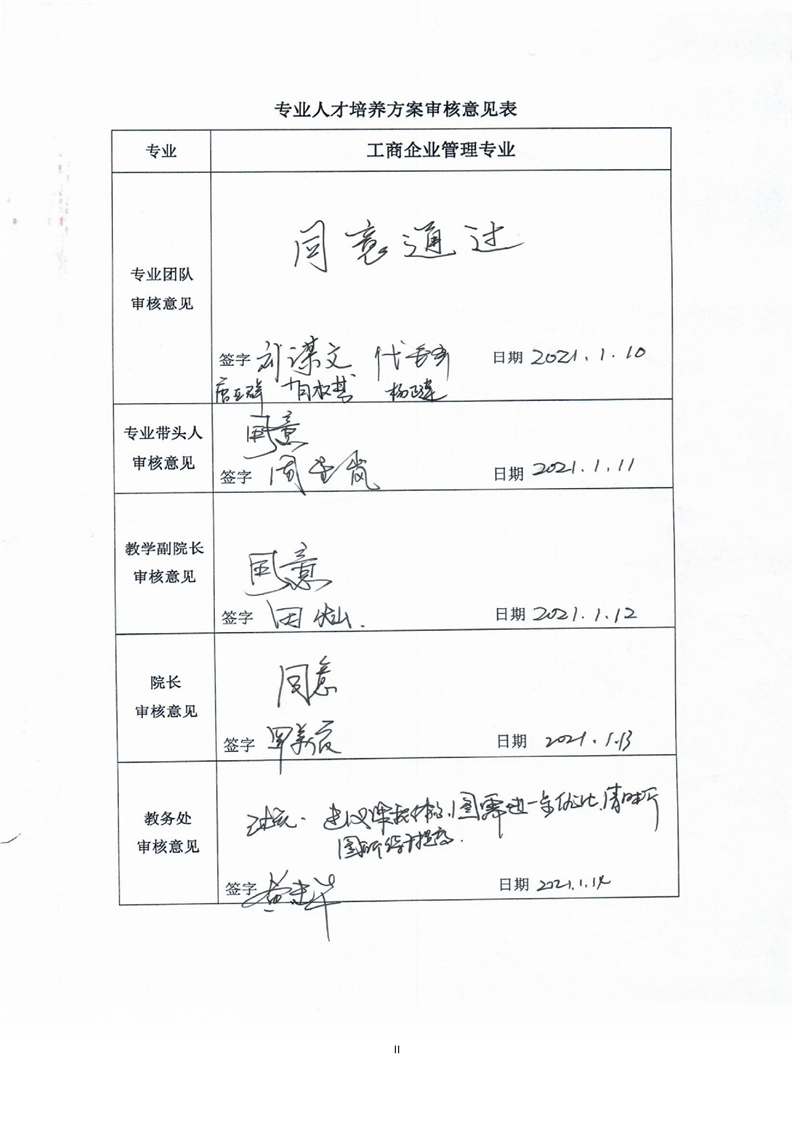 专业人才培养方案审核意见表
专业
工商企业管理专业
专业团队
审核意见
同意通过
签字 刘谋文 代
日期 2021.1.10
专业带头人
审核意见
同意
签字 周
日期 2021.1.11
教学副院长
审核意见
同意
签字 田灿.
日期 2021.1.12
院长
审核意见
同意
签字
日期 2021.1.13
教务处
审核意见
建议课程体系图需进一步优化,清晰
签字
日期 2021.1.14
II